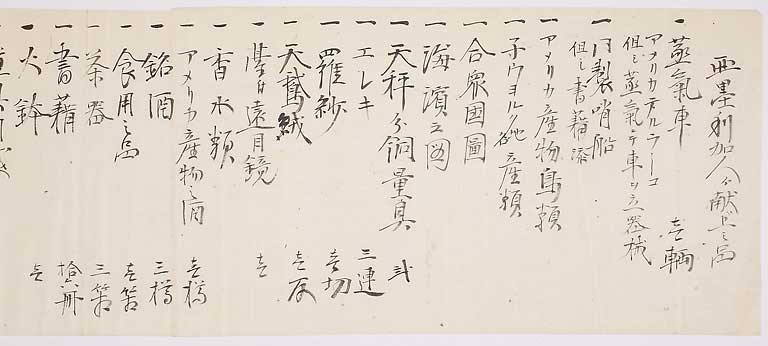 亜墨利加人ゟ献上之品
一 蒸氣車 壱輌
但し蒸氣ニテ車ヲ立器械
製哨船
但し書籍添
一 アメリカ産物鳥類
産類
一 合衆国圖
一 海濱之図
一 天秤分銅量具 弐
一 エレキ 三連
一 羅紗 壱切
一 天鵞絨 壱反
遠目鏡 壱
一 香水類
一 アメリカ産物之酒 壱樽
一 銘酒 三樽
一 食用之品 壱箱
一 茶器 三箱
一 書籍 拾冊
一 火鉢 壱